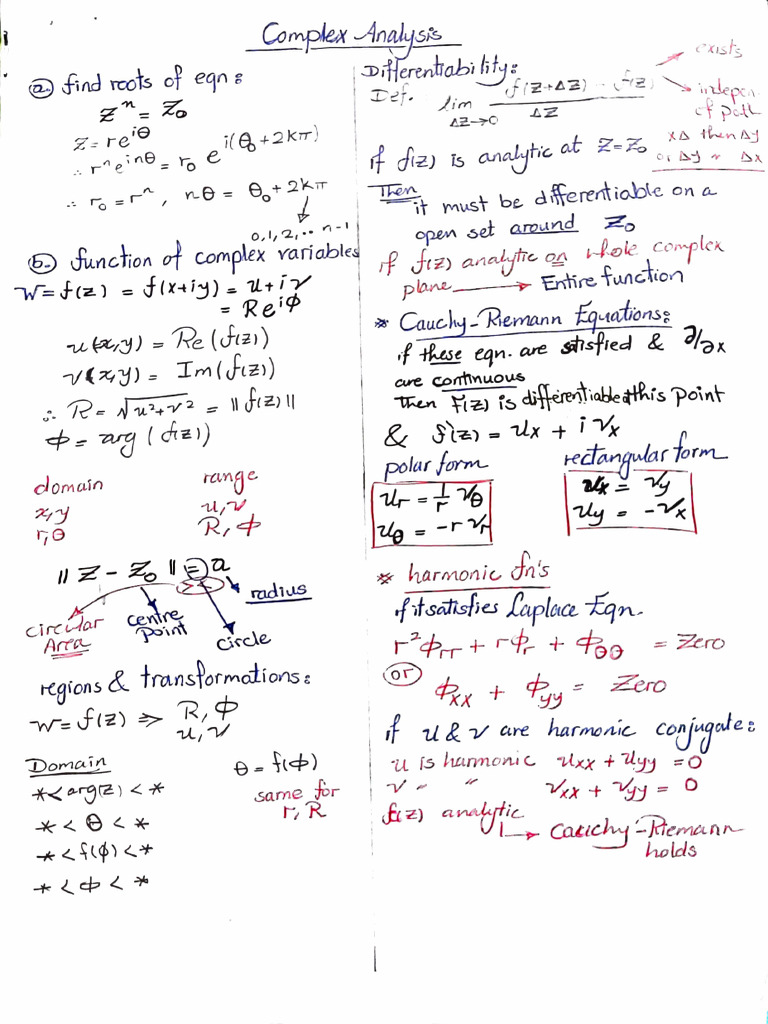 Complex Analysis
a. find roots of eqn:
zⁿ = z₀
z = re^{iθ}
∴ rⁿe^{inθ} = r₀ e^{i(θ₀+2kπ)}
∴ r₀ = rⁿ, nθ = θ₀ + 2kπ
0,1,2,.. n-1
b. function of complex variables
w = f(z) = f(x+iy) = u+iv
= Re^{iϕ}
u(x,y) = Re(f(z))
v(x,y) = Im(f(z))
∴ R = √(u²+v²) = ||f(z)||
ϕ = arg(f(z))
domain range
x,y u,v
r,θ R,ϕ
|| z - z₀ || = a
≤
radius
circular Area
centre point
circle
regions & transformations:
w = f(z) ⇒ R,ϕ
u,v
Domain θ = f(ϕ)
* < arg(z) < * same for
r, R
* < θ < *
* < f(ϕ) < *
* < ϕ < *
Differentiability:
Def. lim Δz→0 f(z+Δz) - f(z) / Δz
exists
indepen. of path
xΔ then Δy
o, Δy " Δx
if f(z) is analytic at z=z₀
Then
it must be differentiable on a
open set around z₀
if f(z) analytic on whole complex
plane → Entire function
* Cauchy-Riemann Equations:
if these eqn. are satisfied & ∂/∂x
are continuous
Then f(z) is differentiable at this point
& f`(z) = uₓ + i vₓ
polar form rectangular form
u_r = 1/r v_θ uₓ = v_y
u_θ = -r v_r u_y = -vₓ
* harmonic fn's
if it satisfies Laplace Eqn.
r²ϕ_rr + rϕ_r + ϕ_θθ = Zero
or
ϕ_xx + ϕ_yy = Zero
if u & v are harmonic conjugate:
u is harmonic u_xx + u_yy = 0
v " " v_xx + v_yy = 0
f(z) analytic
↳ Cauchy-Riemann
holds